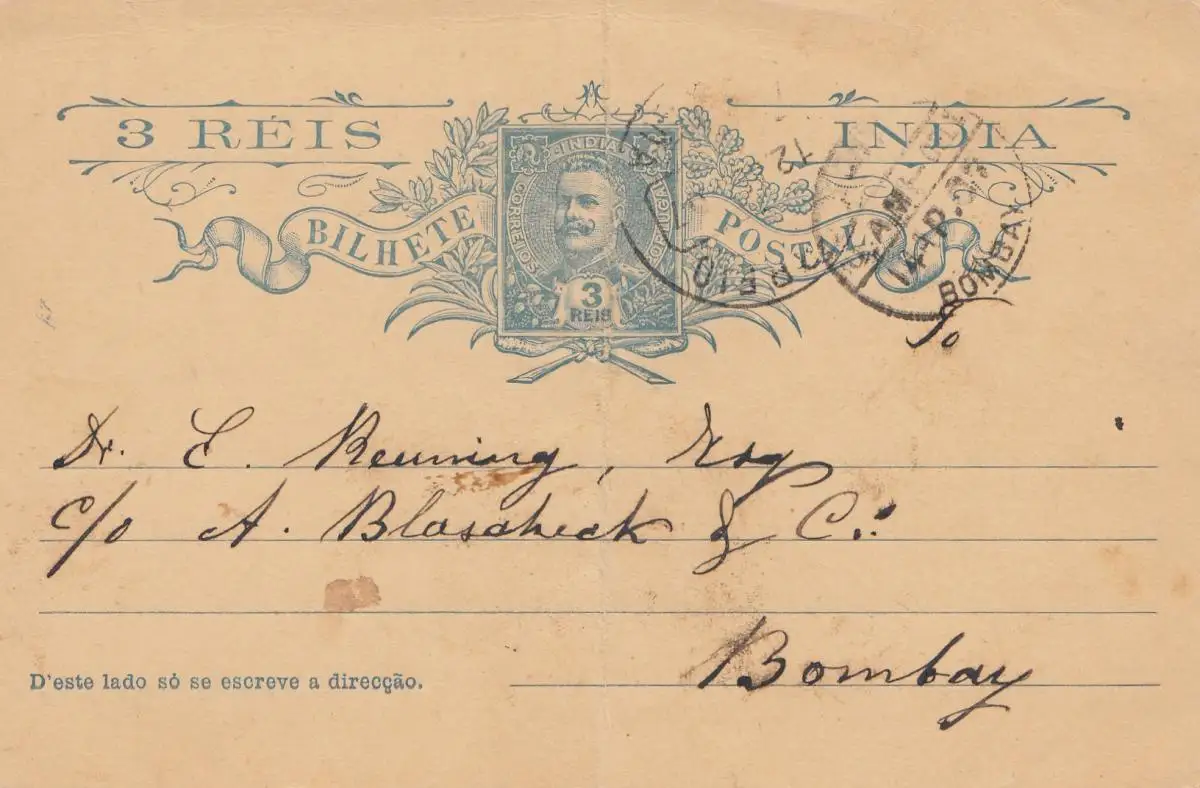 3 RÉIS
INDIA
INDIA
CORREIOS
BILHETE
POSTAL
3
REIS
12
14 AP
BOMBAY
Dr. E. Reuning, Esq
c/o A. Blascheck & Co.
Bombay
D'este lado só se escreve a direcção.